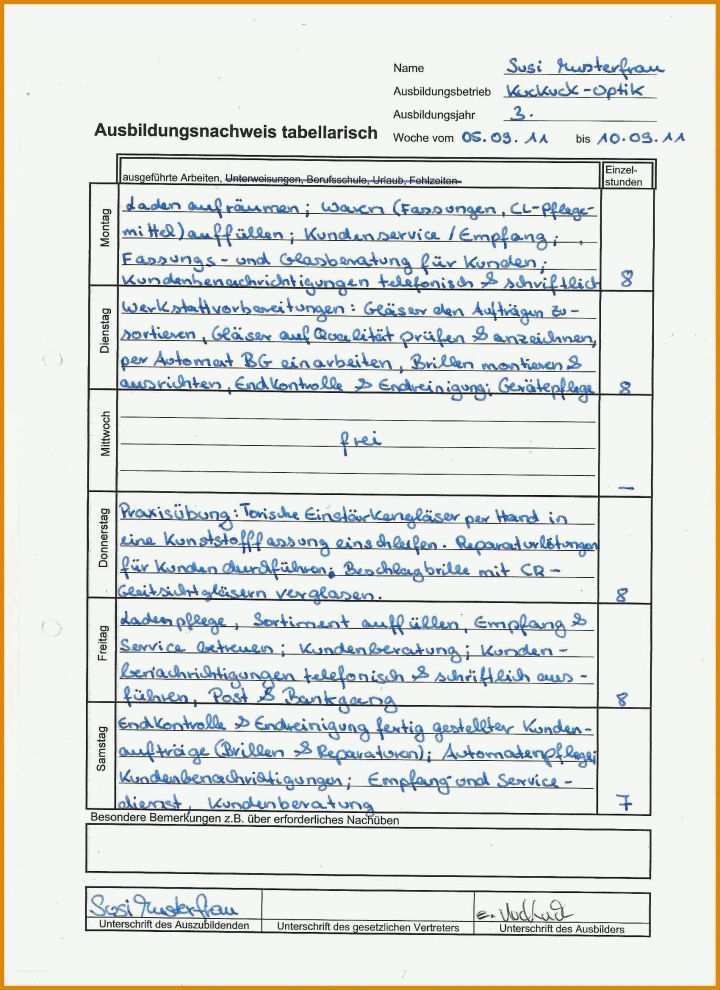 Name Susi Musterfrau
Ausbildungsbetrieb Kuckuck-Optik
Ausbildungsjahr 3.
Ausbildungsnachweis tabellarisch Woche vom 05.09.11 bis 10.09.11
ausgeführte Arbeiten, Unterweisungen, Berufsschule, Urlaub, Fehlzeiten
Einzel-
stunden
Montag
Laden aufräumen; Waren (Fassungen, CL-Pflege-
mittel) auffüllen; Kundenservice / Empfang;
Fassungs- und Glasberatung für Kunden;
Kundenbenachrichtigungen telefonisch & schriftlich 8
Dienstag
Werkstattvorbereitungen: Gläser den Aufträgen zu-
sortieren, Gläser auf Qualität prüfen & anzeichnen,
per Automat BG einarbeiten, Brillen montieren &
ausrichten, Endkontrolle & Endreinigung; Gerätepflege 8
Mittwoch
frei
–
Donnerstag
Praxisübung: Torische Einstärkengläser per Hand in
eine Kunststofffassung einschleifen. Reparaturlötungen
für Kunden durchführen; Beschlagbrille mit CR-
Gleitsichtgläsern verglasen. 8
Freitag
Ladenpflege, Sortiment auffüllen, Empfang &
Service betreuen; Kundenberatung; Kunden-
benachrichtigungen telefonisch & schriftlich aus-
führen, Post & Bankgang 8
Samstag
Endkontrolle & Endreinigung fertig gestellter Kunden-
aufträge (Brillen & Reparaturen); Automatenpflege;
Kundenbenachrichtigungen; Empfang und Service-
dienst, Kundenberatung 7
Besondere Bemerkungen z.B. über erforderliches Nachüben
Susi Musterfrau
Unterschrift des Auszubildenden Unterschrift des gesetzlichen Vertreters Unterschrift des Ausbilders